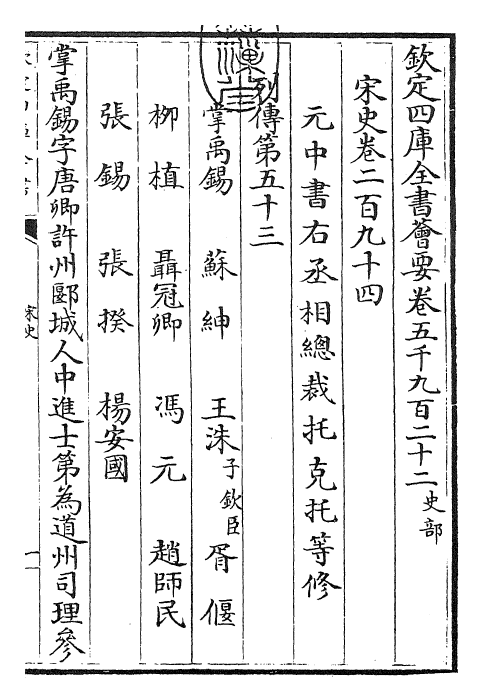 欽定四庫全書薈要卷五千九百二十二史部
宋史卷二百九十四
元中書右丞相總裁托克托等修
列傳第五十三
掌禹錫 蘇紳 王洙子欽臣 胥偃
柳植 聶冠卿 馮元 趙師民
張錫 張揆 楊安國
掌禹錫字唐卿許州郾城人中進士第為道州司理參
宋史
一